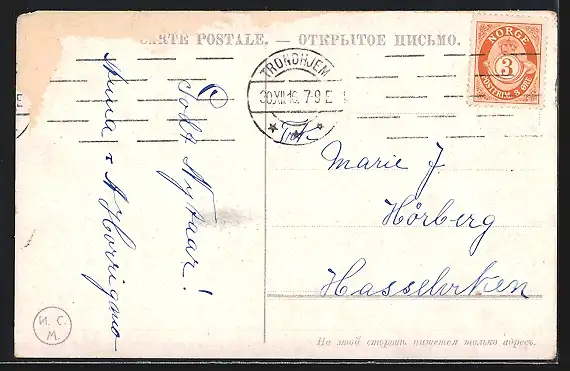 CARTE POSTALE. — ОТКРЫТОЕ ПИСЬМО.
TRONDHJEM
30.XII.16. 7-9 E
NORGE
3
POSTFRIM. 3 ØRE
Godt Nytaar!
Anna
Marie J.
Hörberg
И. С.
М.
На этой сторонѣ пишется только адресъ.